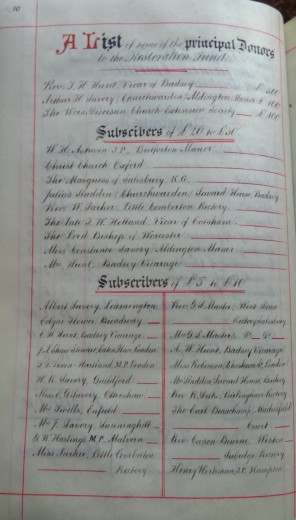 A List of some of the principal Donors
to the Restoration Fund.
Rev. T. H. Hunt, Vicar of Badsey £ 500
Arthur H. Savory, Churchwarden, Aldington Manor £ 100
The Worcester Church Extension Society £ 100
Subscibers of £ 20 to £ 50
W. H. Ashwin J.P., Bretforton Manor
Christ Church Oxford
The Marquess of Salisbury K.G.
Julius Sladden, Churchwarden, Seward House, Badsey
Rev. W. Parker, Little Comberton Rectory
The late T. W. Holland, Vicar of Evesham
The Lord Bishop of Worcester
Miss Constance Savory, Aldington Manor
Mrs Hunt, Badsey Vicarage
Subscribers of £ 5 to £ 10
Albert Savory, Leamington
Edgar Flower, Broadway
E. H. Hunt, Badsey Vicarage
London
M.P. London
H. K. Savory, Guildford
Miss E. Savory,
Mrs Enfield
Mrs J. Savory, Sunninghill
G. W. Hastings M.P. Malvern
Miss Parker, Little Comberton
Rectory
Rev. G. S. Master, West Dean
Mrs G. S. Master, Do Do
A. W. Hunt, Badsey Vicarage
Miss Robinson, London
Mrs Sladden Seward House, Badsey
Rev. Rectory
The Earl Beauchamp, Madresfield
Court
Rev. Canon Bourne,
Henry Workman J.P. Hampton